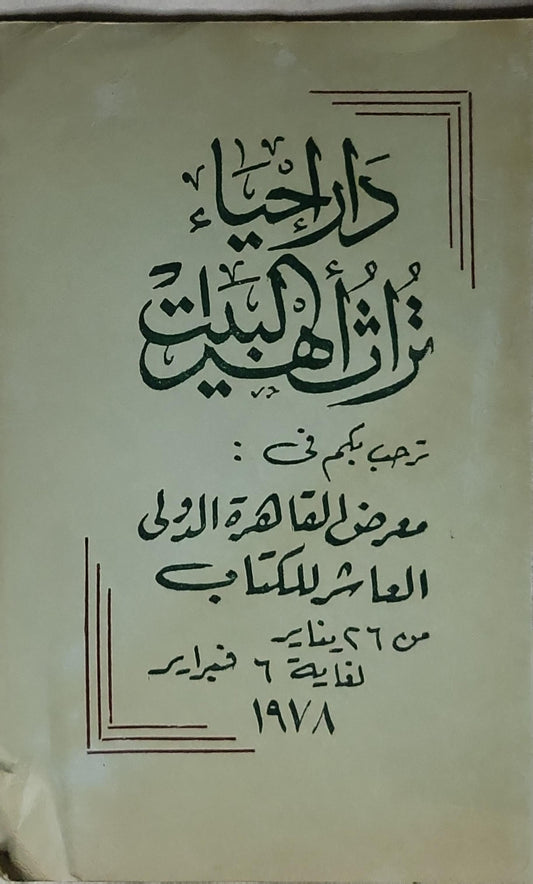 دَار إحْيَاء
تُراثُ أهل البَيت
ترحب بكم فى :
معرض القاهرة الدولى
العاشر للكتاب
من ٢٦ يناير
لغاية ٦ فبراير
١٩٧٨